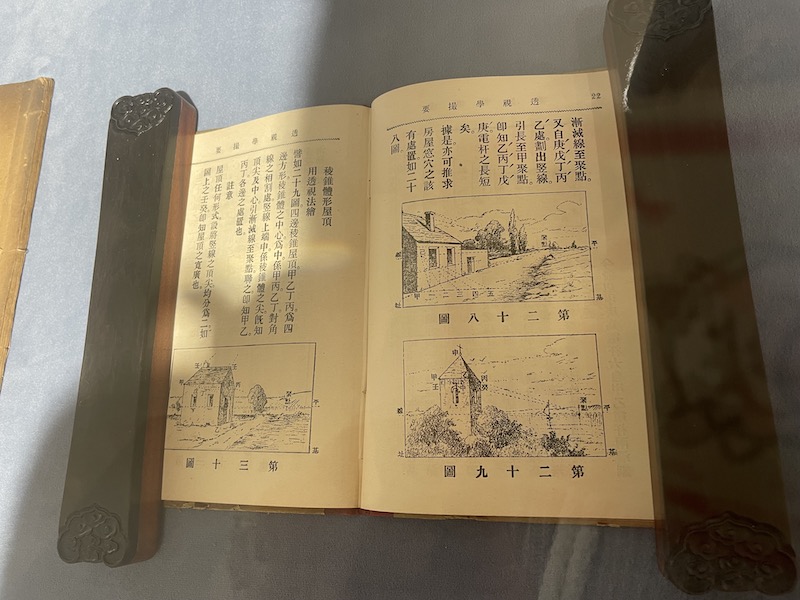 透視學撮要
22
漸減線至聚點。
又自庚戊丁丙
乙處劃出竪線
引長至甲聚點
卽知乙丙丁戊
庚電杆之長短
矣。
據是亦可推求
房屋窓穴之該
有處置如二十
八圖。
第二十八圖
第二十九圖
透視學撮要
稜錐體形屋頂
用透視法繪
譬如二十九圖四邊稜錐屋頂。甲乙丁丙。爲四
邊方形稜錐體之中心。爲中。係甲丙。乙丁對角
線之相割處竪線上端中。係稜錐體之尖旣知
頂尖及中心引漸減線至聚點聯之卽知甲乙
丙丁各邊之處置也。
註意
屋頂任何形式設將竪線之頂尖均分爲二如
圖上之壬癸卽知屋頂之寬廣也。
第三十圖